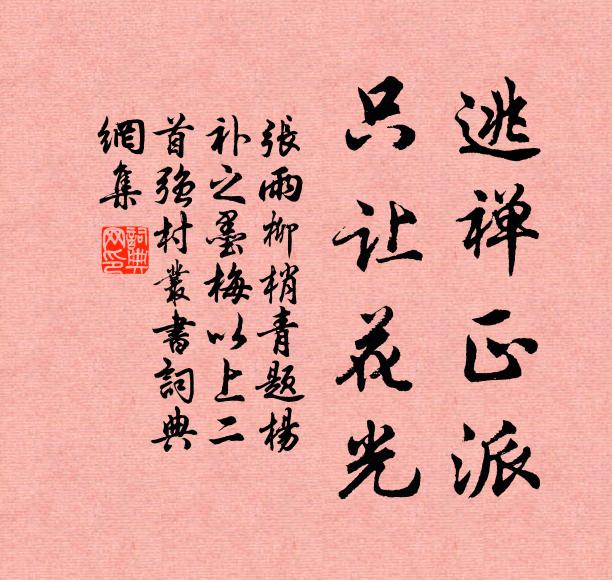 逃禅正派
只让花光
張雨柳梢青题楊
补之墨梅以上二
首强村叢書詞典
網集
詞典網印